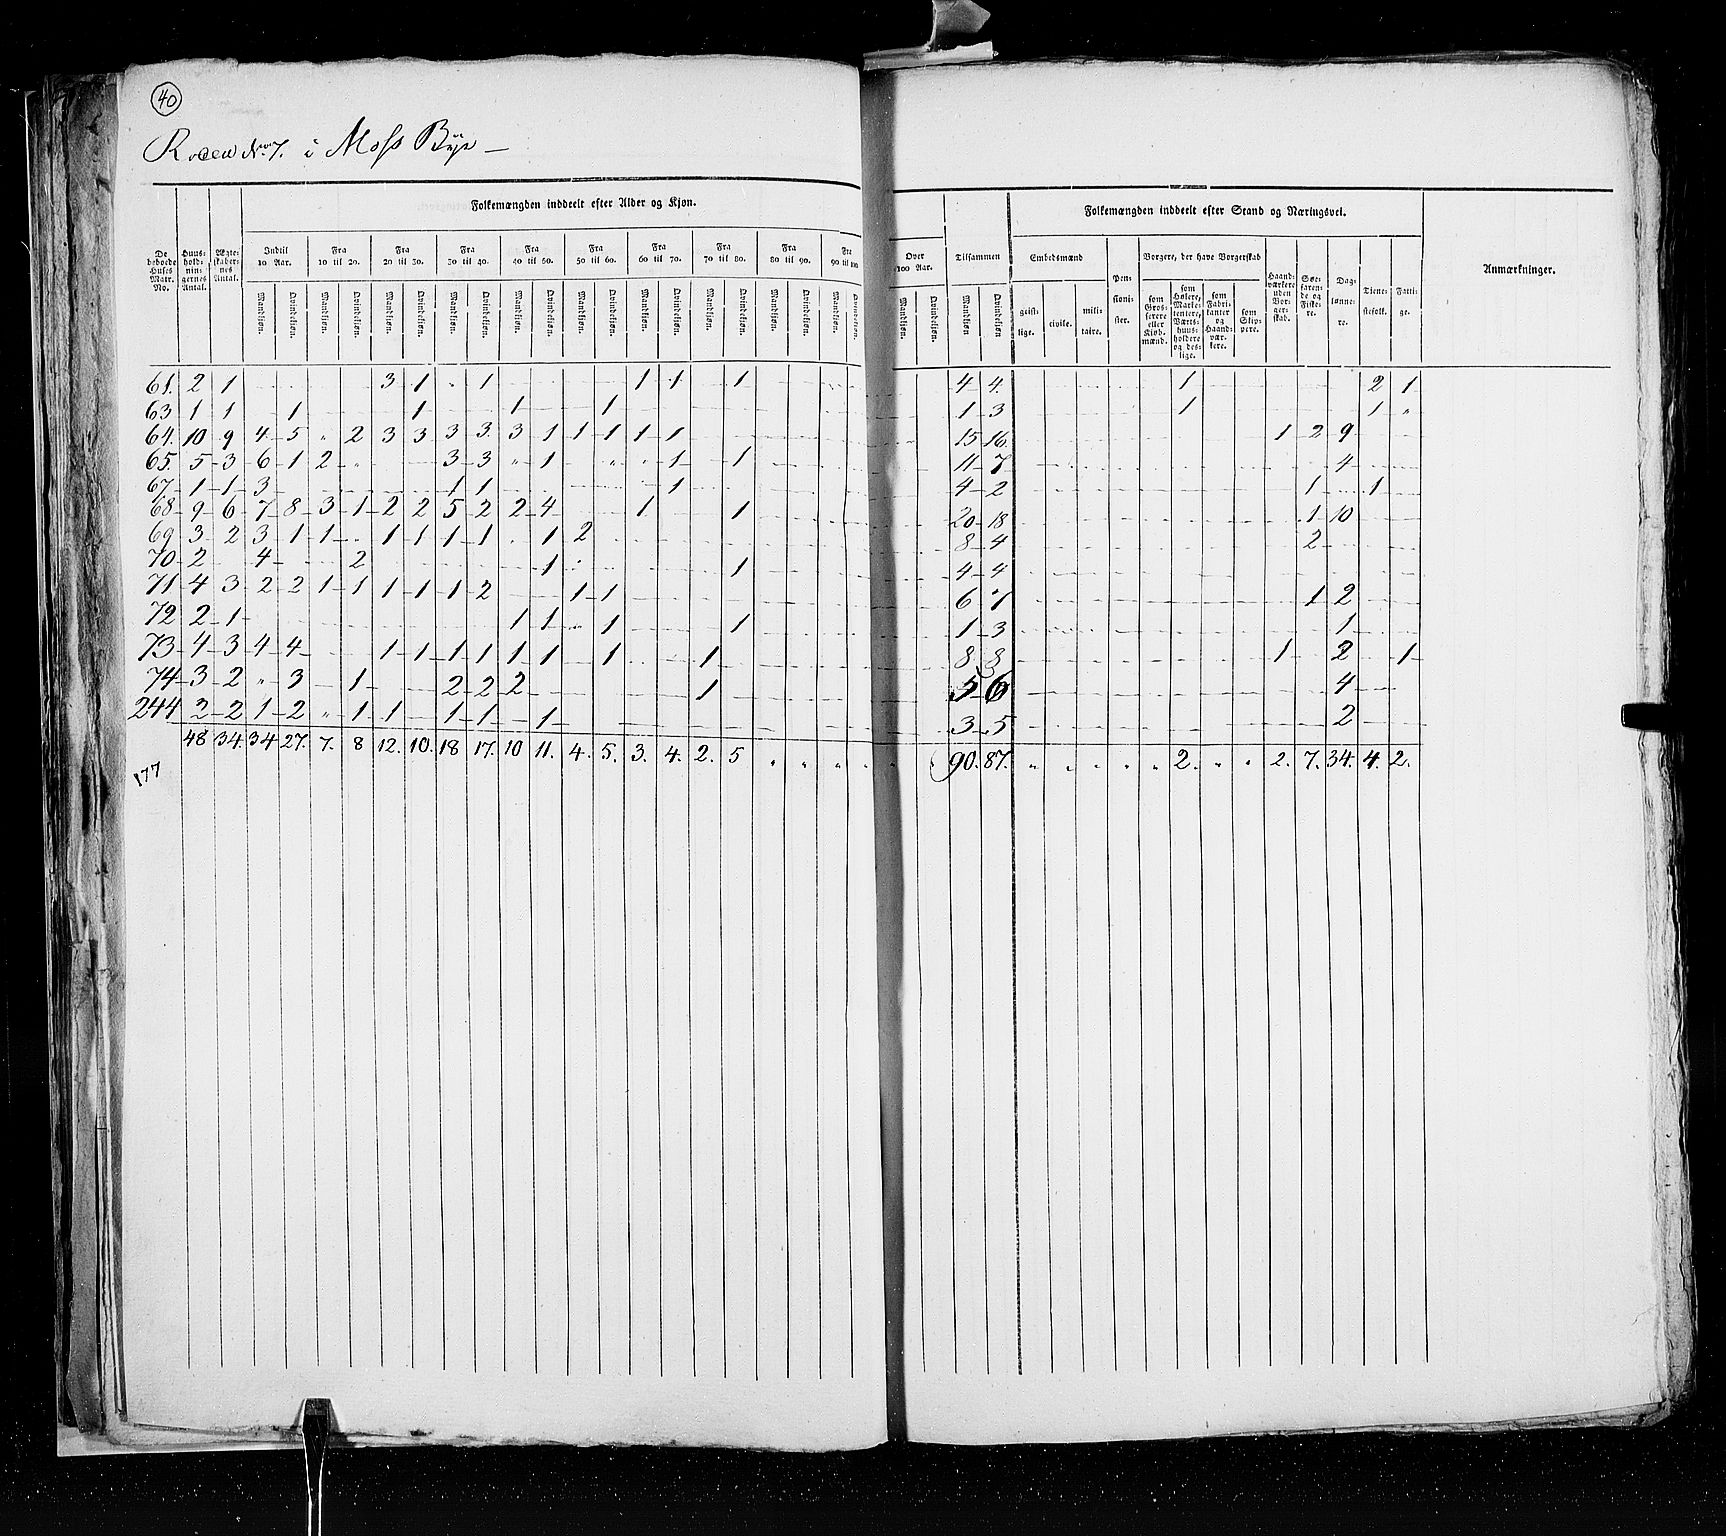 40
Roden No. 7. i Moss Bye
Folkemængden inddeelt efter Alder og Kjøn.
Folkemængden inddeelt efter Stand og Næringsvei.
De beboede Huses Matr. No.
Huus-hold-nin-gernes Antal.
Ægte-skaber-nes Antal.
Indtil 10 Aar.
Fra 10 til 20.
Fra 20 til 30.
Fra 30 til 40.
Fra 40 til 50.
Fra 50 til 60.
Fra 60 til 70.
Fra 70 til 80.
Fra 80 til 90.
Fra 90 til 100
Over 100 Aar.
Tilsammen
Embedsmænd
Pen-sioni-ster.
Borgere, der have Borgerskab
Haand-værkere uden Bor-ger-skab.
Søe-faren-de og Fiske-re.
Dag-lønne-re.
Tiene-stefolk.
Fatti-ge.
Anmærkninger.
Mandkjøn. Qvindekjøn. Mandkjøn. Qvindekjøn. Mandkjøn. Qvindekjøn. Mandkjøn. Qvindekjøn. Mandkjøn. Qvindekjøn. Mandkjøn. Qvindekjøn. Mandkjøn. Qvindekjøn. Mandkjøn. Qvindekjøn. Mandkjøn. Qvindekjøn. Mandkjøn. Qvindekjøn. Mandkjøn. Qvindekjøn. Mandkjøn Qvindekjøn
geist-lige. civile. mili-taire.
som Gros-serere eller Kjøb-mænd.
som Høkere, Marke-tentere, Værts-huus-holdere og des-lige.
som Fabri-kanter og Haand-vær-kere.
som Skip-pere.
61. 2 1 3 1 1 1 1 1 4 4. 1 2 1
63 1 1 1 1 1 1 1 3 1 1
64. 10 9 4 5 2 3 3 3 3 3 1 1 1 1 1 15 16. 1 2 9
65. 5 3 6 1 2 3 3 1 1 1 11 7 4
67 1 1 3 1 1 1 4 2 1 1
68 9 6 7 8 3 1 2 2 5 2 2 4 1 1 20 18 1 10
69 3 2 3 1 1 1 1 1 1 1 2 8 4 2
70 2 4 2 1 1 4 4
71 4 3 2 2 1 1 1 1 1 2 1 1 6 7 1 2
72 2 1 1 1 1 1 1 3 1
73 4 3 4 4 1 1 1 1 1 1 1 1 8 8 1 2 1
74 3 2 3 1 2 2 2 1 5 6 4
244 2 2 1 2 1 1 1 1 1 3 5 2
48 34. 34 27. 7. 8 12. 10. 18 17. 10 11. 4. 5. 3. 4. 2. 5 90. 87. 2. 2. 7. 34. 4. 2.
177